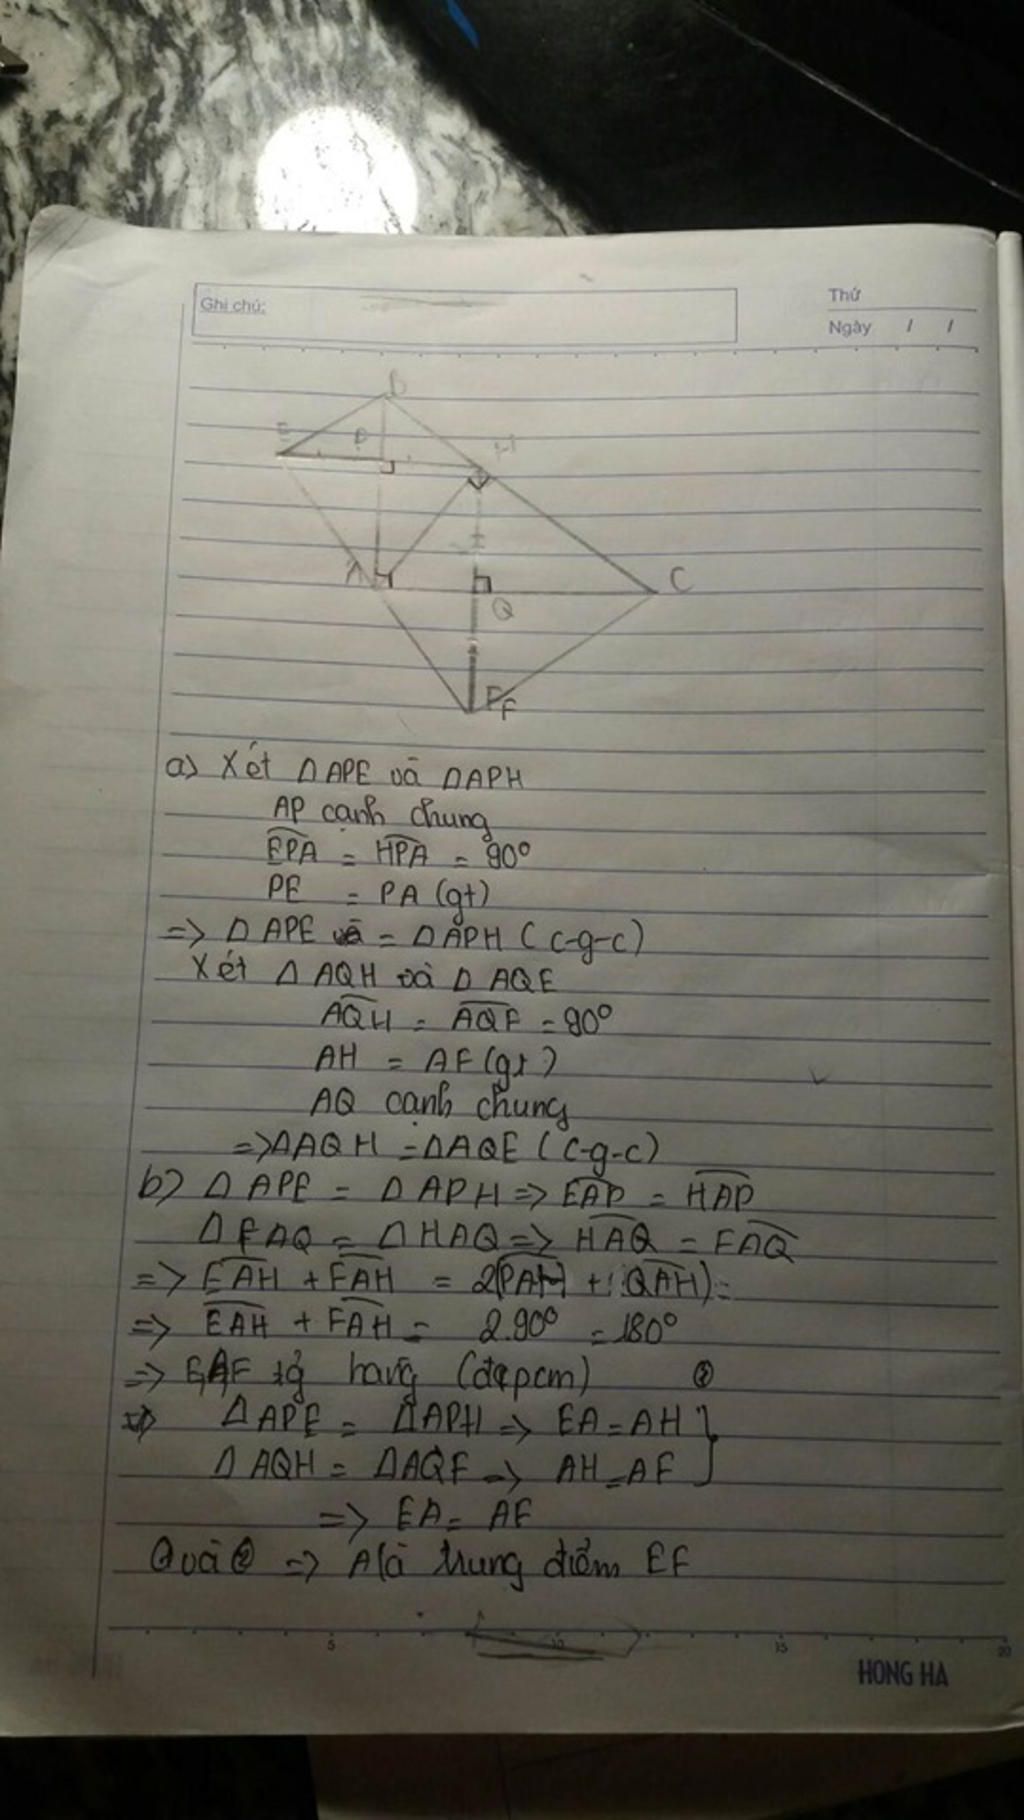 Ghi chú:
Thứ
Ngày / /
B
E
P
H
A
C
Q
F
a) Xét △APE và △APH
AP cạnh chung
EPA = HPA = 90°
PE = PA (gt)
=> △APE = △APH (c-g-c)
Xét △AQH và △AQE
AQH = AQF = 90°
AH = AF (gt)
AQ cạnh chung
=> △AQH = △AQE (c-g-c)
b) △APE = △APH => EAP = HAP
△FAQ = △HAQ => HAQ = FAQ
=> EAH + FAH = 2(PAH + QAH) =
=> EAH + FAH = 2.90° = 180°
=> E,A,F hàng (đpcm) ②
△APE = △APH => EA = AH }
△AQH = △AQF => AH = AF
=> EA = AF
① và ② => A là trung điểm EF
5 10 15 20
HONG HA